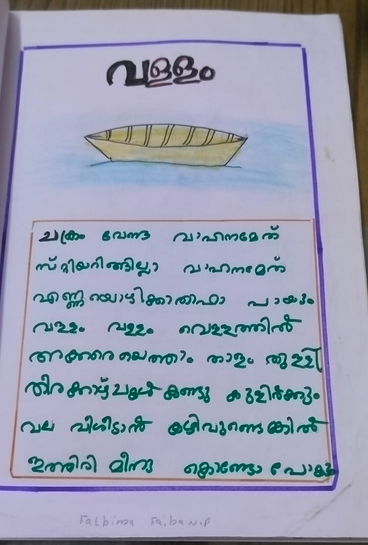 വള്ളം
ചക്രം വേണ്ട വാഹനമേത്
സ്റ്റിയറിങ്ങില്ലാ വാഹനമേത്
എണ്ണയൊഴിക്കാതിഹാ പായും
വള്ളം വള്ളം വെള്ളത്തിൽ
അക്കരെയെത്താം താളം തുള്ളി
തിരക്കാഴ്ചകൾ കണ്ടു കുളിർക്കും
വല വിശീടാൻ കഴിവുണ്ടെങ്കിൽ
ഇത്തിരി മീനു കൊണ്ടോ പോകും
Fathima Faiha N.P